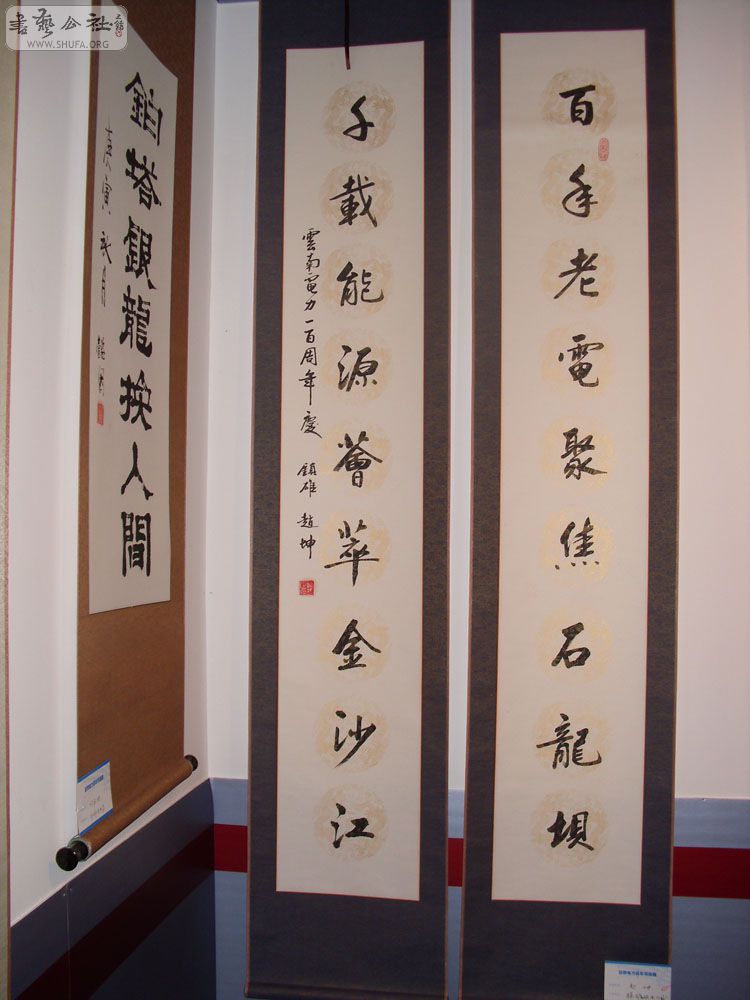 書藝公社
WWW.SHUFA.ORG
百年老電聚焦石龍壩
千載能源薈萃金沙江
雲南電力一百周年慶 鎮雄 趙坤
塔銀龍挨人間
庚寅秋月